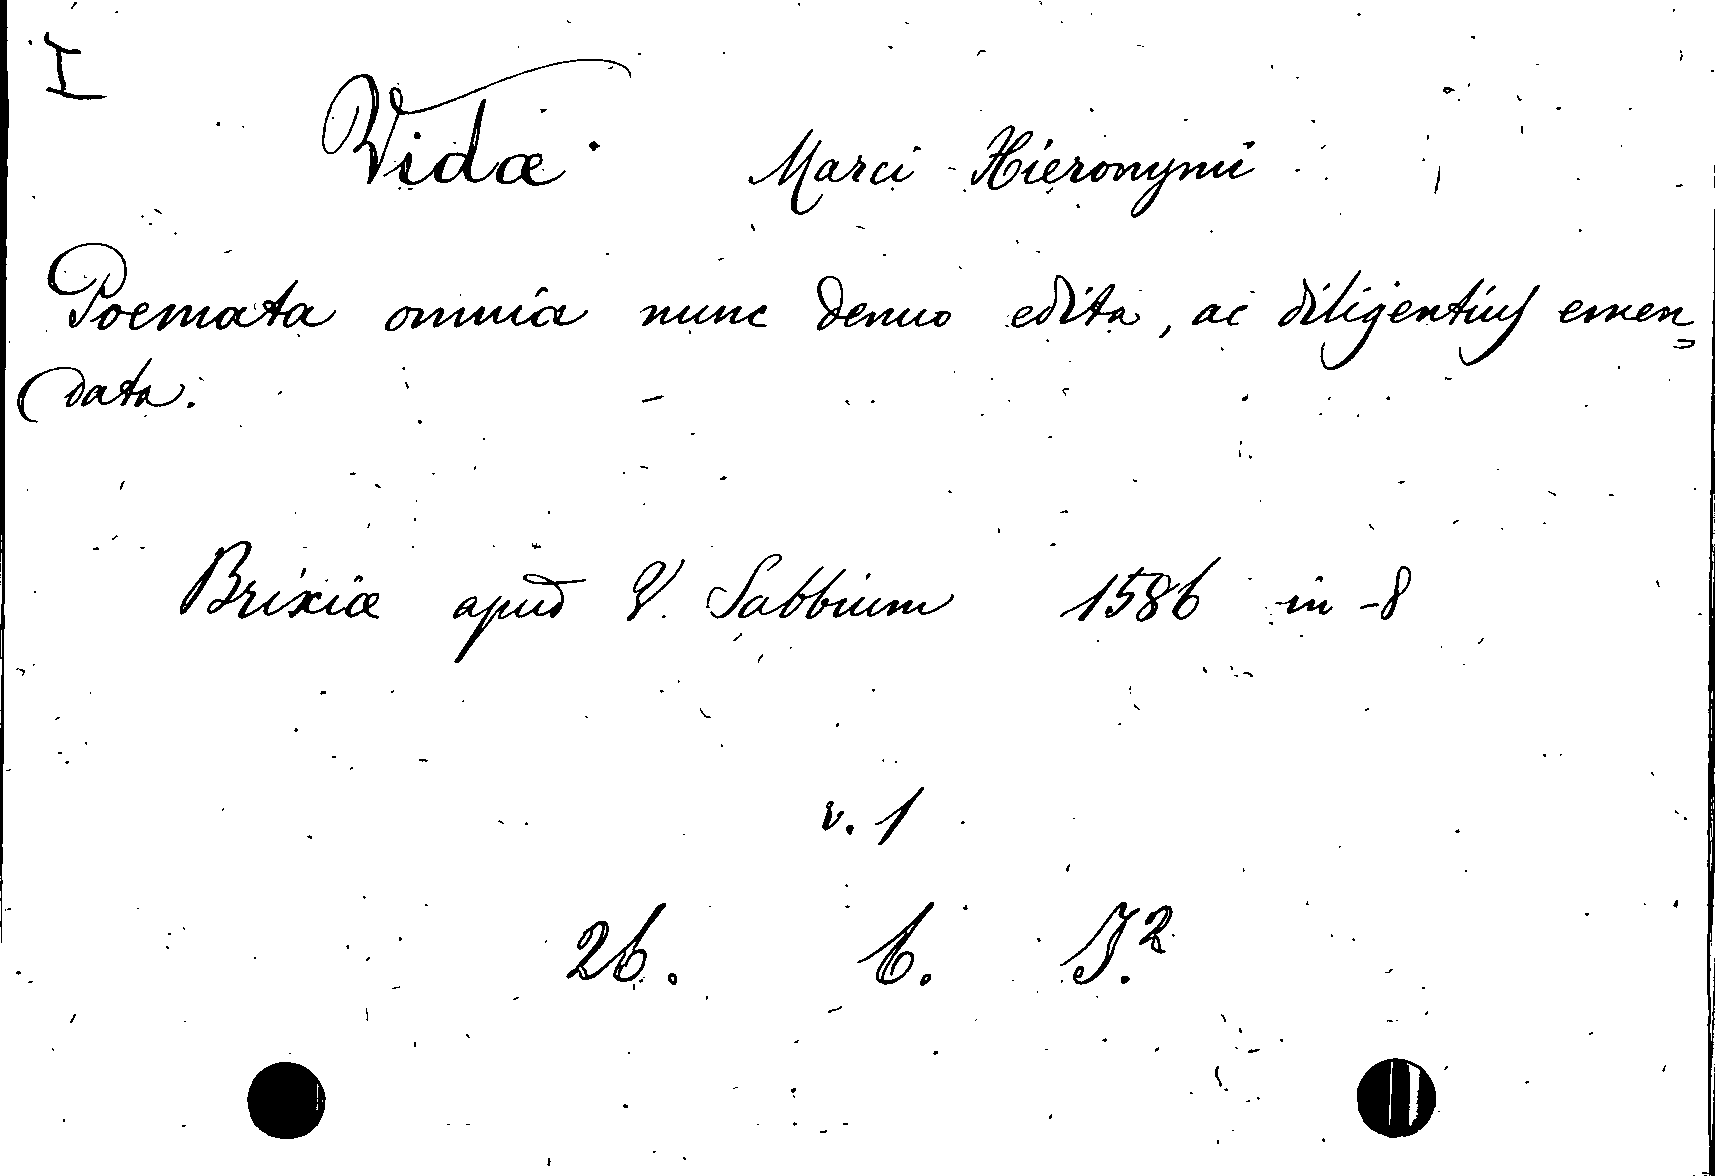 I
Vidæ. Marci Hieronymi
Poemata omnia nunc denuo edita, ac diligentius emen=
data.
Brixiæ apud V. Sabbium 1586 in -8
v. 1
26. 6. J.²